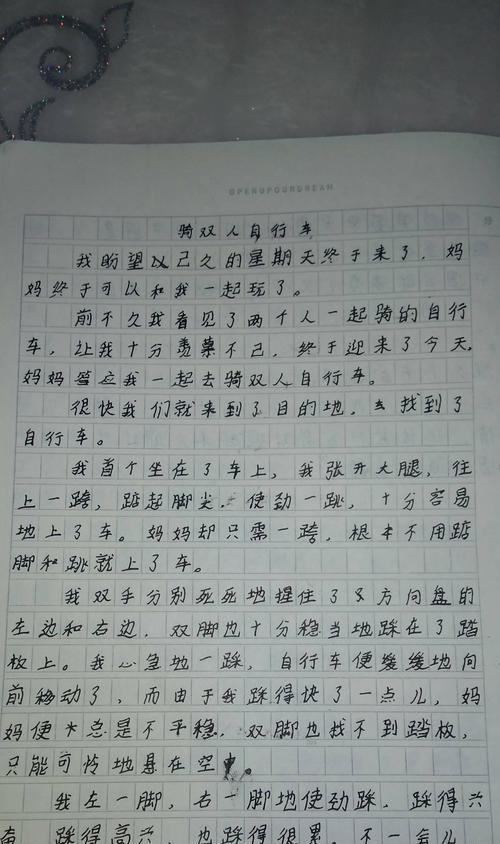 OPENUPOURDREAM
骑双人自行车
我盼望以已久的星期天终于来了，妈
妈终于可以和我一起玩了。
前不久我看见了两个人一起骑的自行
车，让我十分羡慕不已，终于迎来了今天，
妈妈答应我一起去骑双人自行车。
很快我们就来到了目的地，去找到了
自行车。
我首个坐在了车上，我张开大腿，往
上一跨，踮起脚尖，使劲一跳，十分容易
地上了车。妈妈却只需一跨，根本不用踮
脚和跳就上了车。
我双手分别死死地握住了方向盘的
左边和右边，双脚也十分稳当地踩在了踏
板上。我心急地一踩，自行车便缓缓地向
前移动了，而由于我踩得快了一点儿，妈
妈便总是不平稳，双脚也找不到踏板，
只能可怜地悬在空中。
我左一脚，右一脚地使劲踩，踩得兴
奋，踩得高兴，也踩得很累。不一会儿